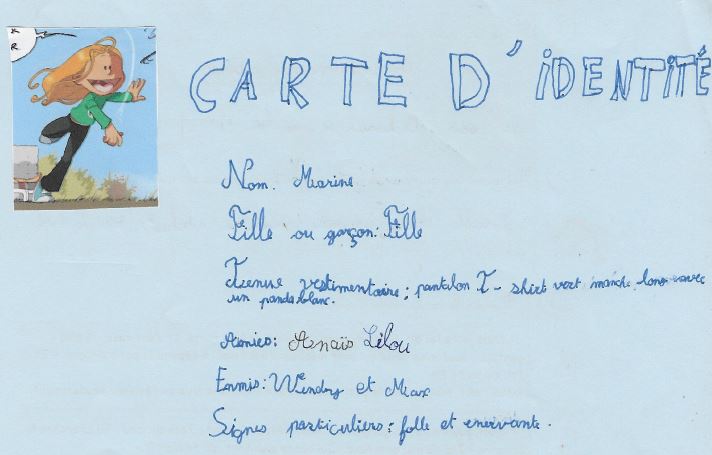 CARTE D'iDENTiTÉ
Nom. Marine
Fille ou garçon: Fille
Tenue vestimentaire; pantalon T-shirt vert manche long avec
un panda blanc.
Amies: Anaïs Lilou
Ennmis: Wendy et Max
Signes particuliers: folle et enervante.